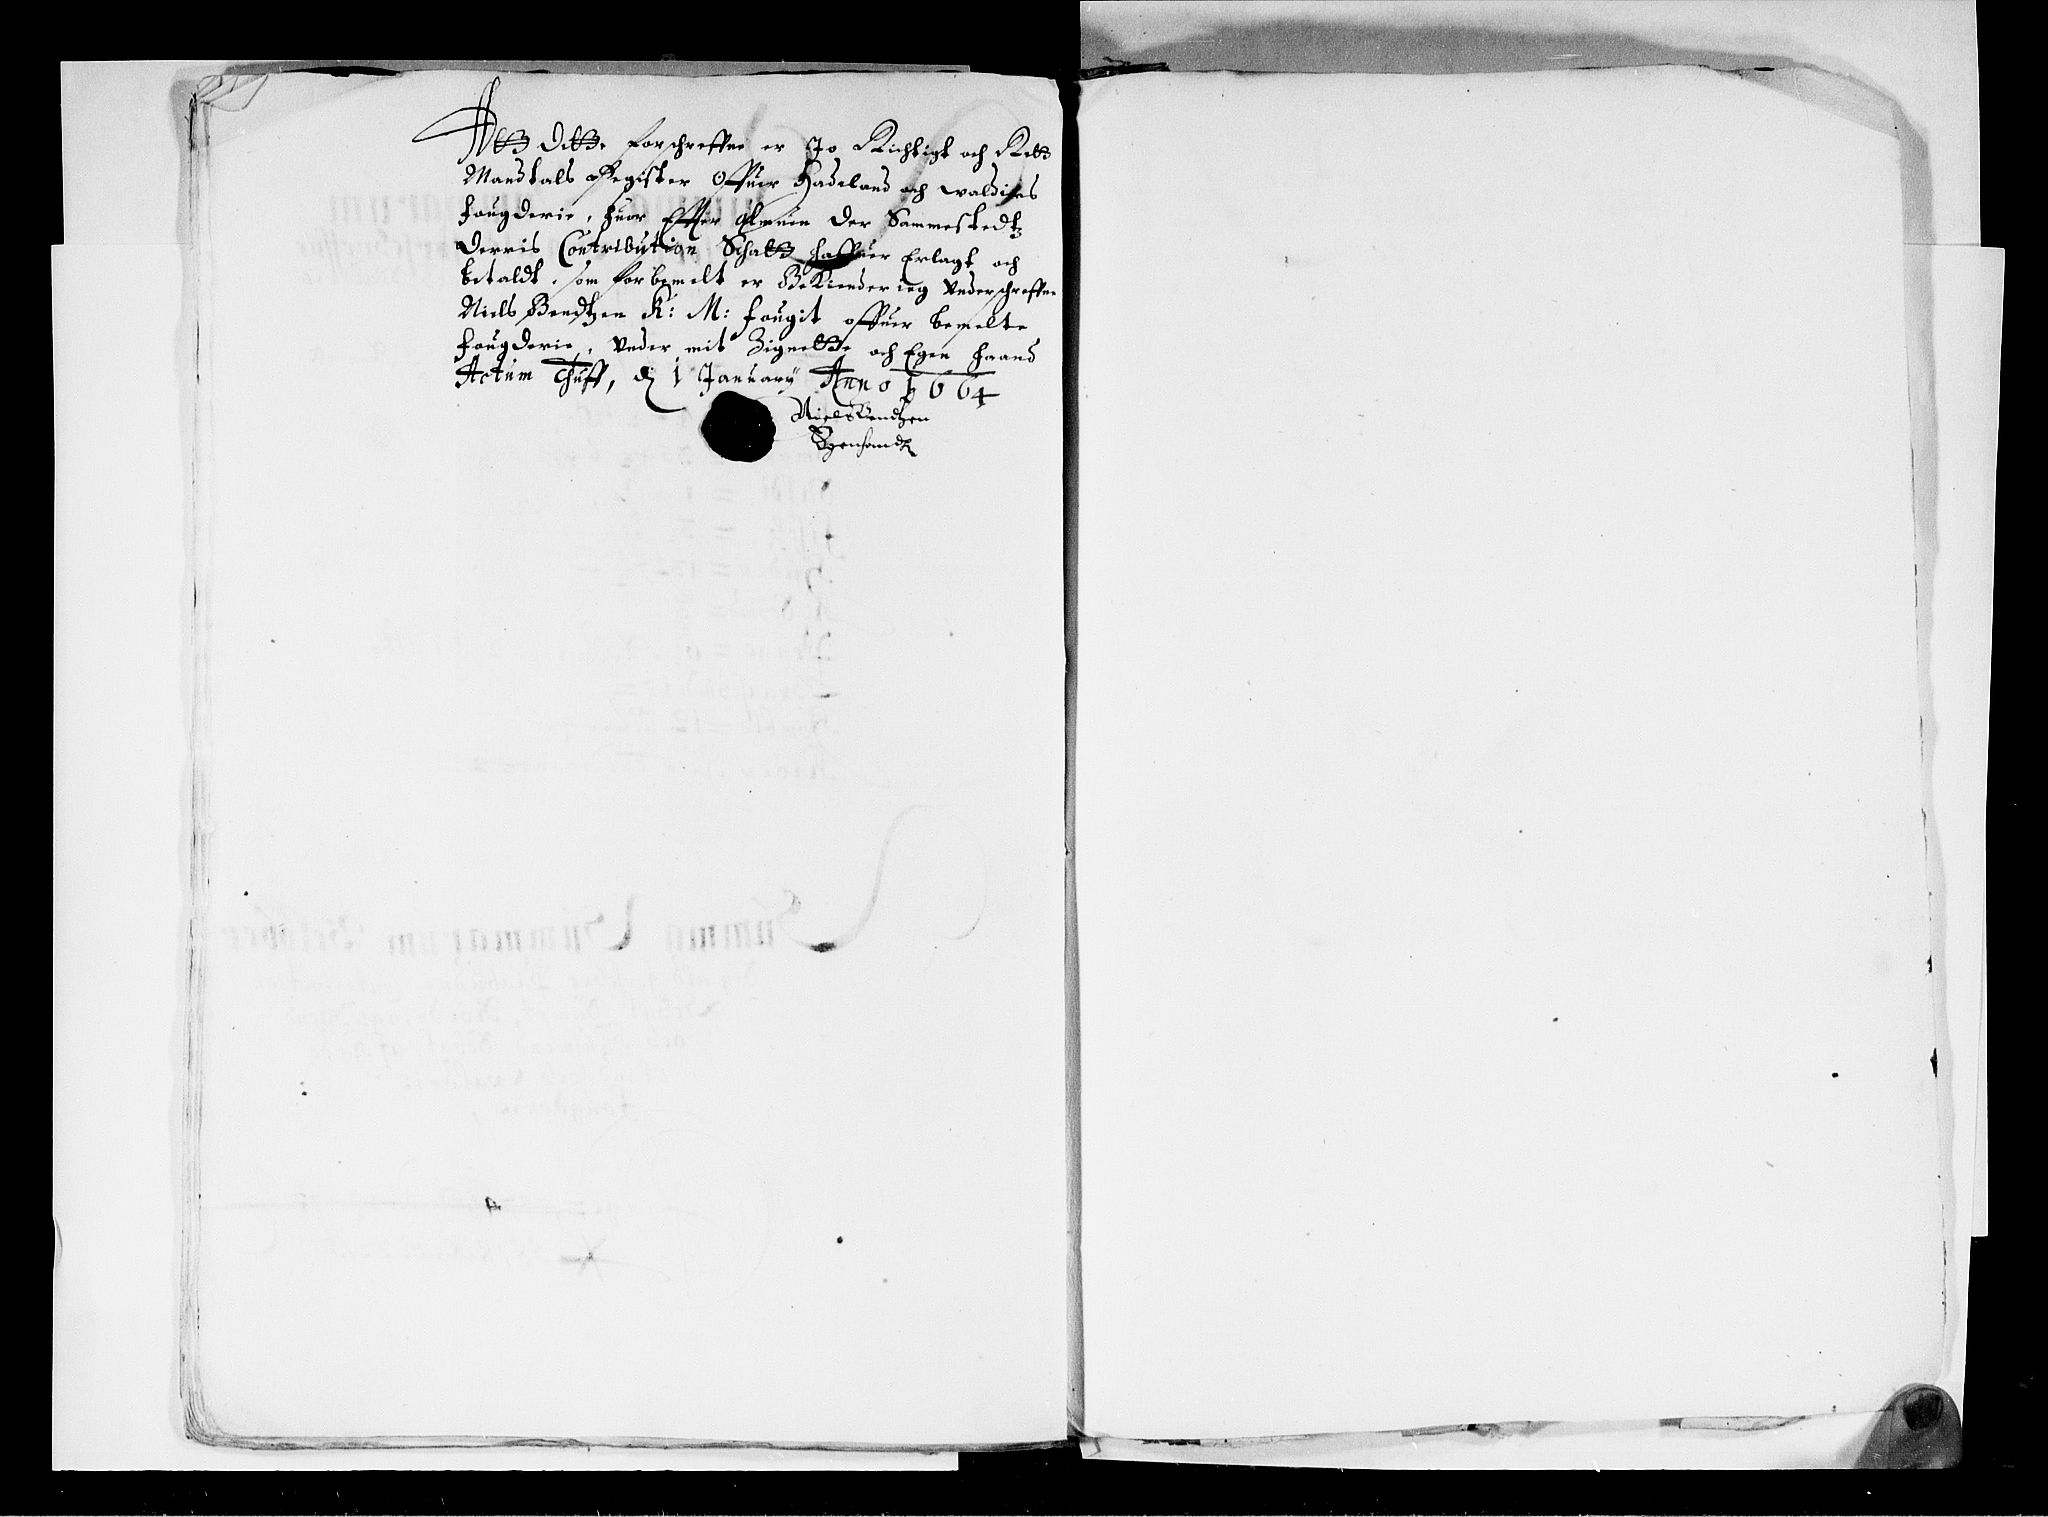 Att Dette forschreffne er Jo Richtigt och Rett
Mandtals Register Offuer Hadeland och Valdires
fougderie, huor Effter Almuen der Sammestedtz
derris Contribution Schatt haffuer Erlagt och
betaldt, som forbemelt er Bekiender ieg Underschreffne
Niels Bendtzen K: M: fougit offuer bemelte
fougderie, Under mit Zignette och Egen haand
Actum Thuff, d: 1 January Anno 1664
Niels Bendtzen
Egenhandt